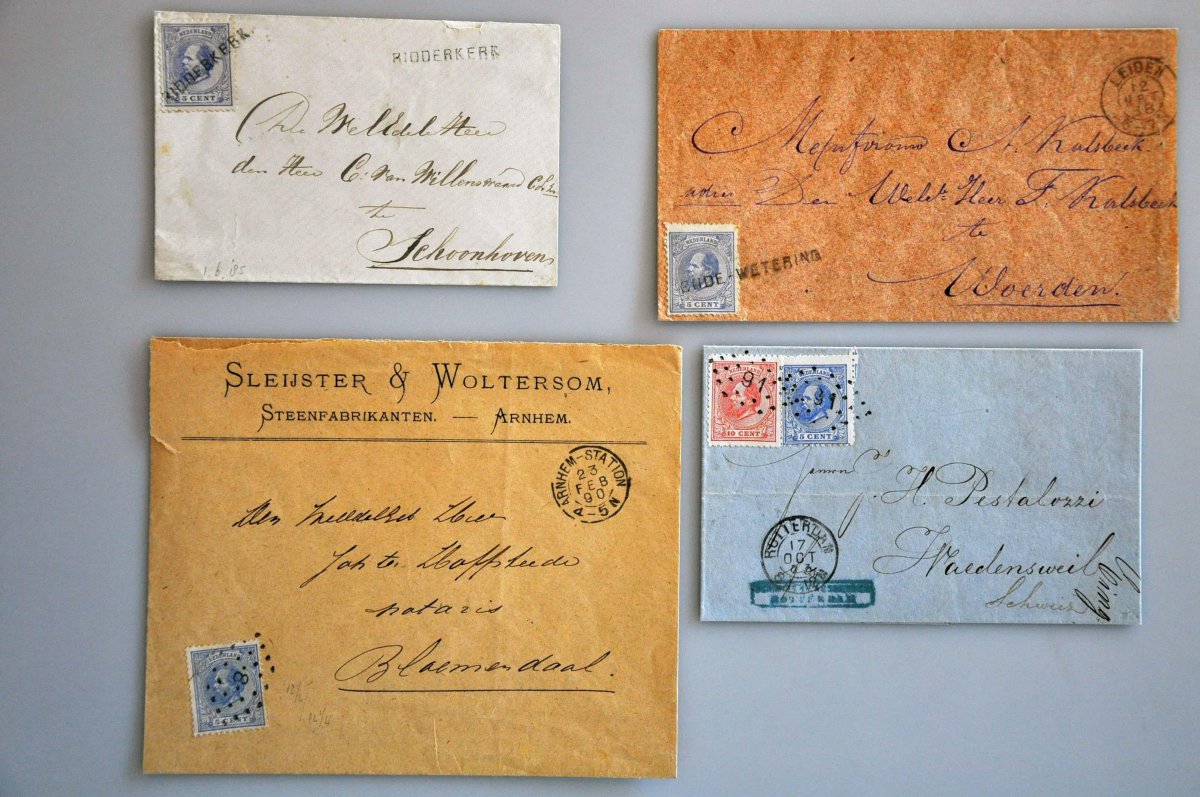 NEDERLAND
RIDDERKERK
5 CENT
RIDDERKERK
De WelEdele Heer
den Heer C. van Willenswaard
te
Schoonhoven
1.6.'85
LEIDEN
12
Mejufvrouw A. Kalsbeek
adres Den WelEd. Heer F. Kalsbeek
te
Woerden.
NEDERLAND
OUDE-WETERING
5 CENT
SLEIJSTER & WOLTERSOM,
STEENFABRIKANTEN. — ARNHEM.
ARNHEM-STATION
23
FEB
90
4-5N
Den Weledelen Heer
notaris
Bloemendaal.
NEDERLAND
8
5 CENT
12 1/4
NEDERLAND
91
10 CENT
NEDERLAND
91
5 CENT
Herrn
H. Pestalozzi
Waedensweil
Schweiz
ROTTERDAM
17
OCT